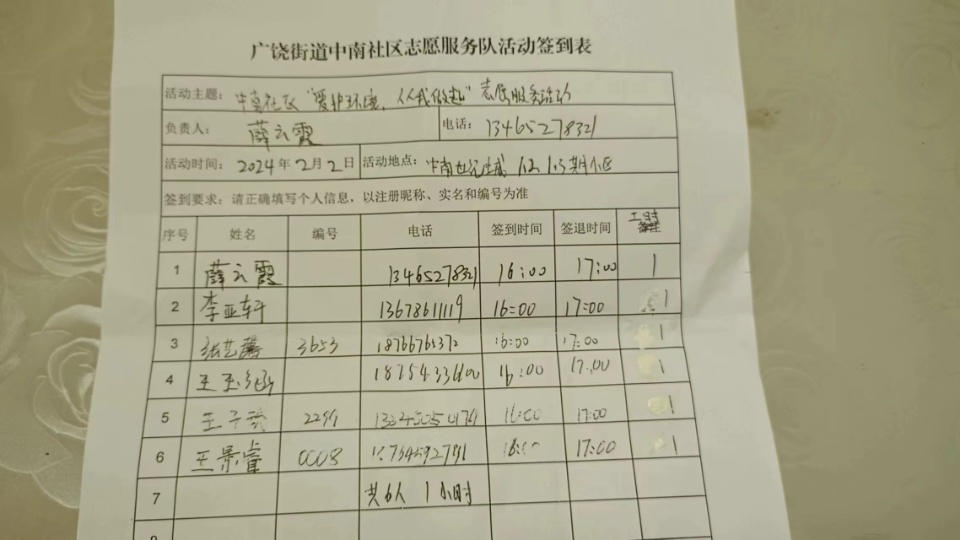 广饶街道中南社区志愿服务队活动签到表
活动主题: 中南社区“爱护环境,从我做起”志愿服务活动
负责人: 薛云霞 电话: 13465278321
活动时间: 2024年2月2日 活动地点: 中南世纪城 1.2. 1.3期小区
签到要求: 请正确填写个人信息,以注册昵称、实名和编号为准
序号 姓名 编号 电话 签到时间 签退时间 工时
1 薛云霞 13465278321 16:00 17:00 1
2 李亚轩 13678611119 16:00 17:00 1
3 3653 18766765372 16:00 17:00 1
4 王玉 16:00 17:00 1
5 王子 2299 16:00 17:00 1
6 王景睿 0008 17:00 1
7 共6人 1小时